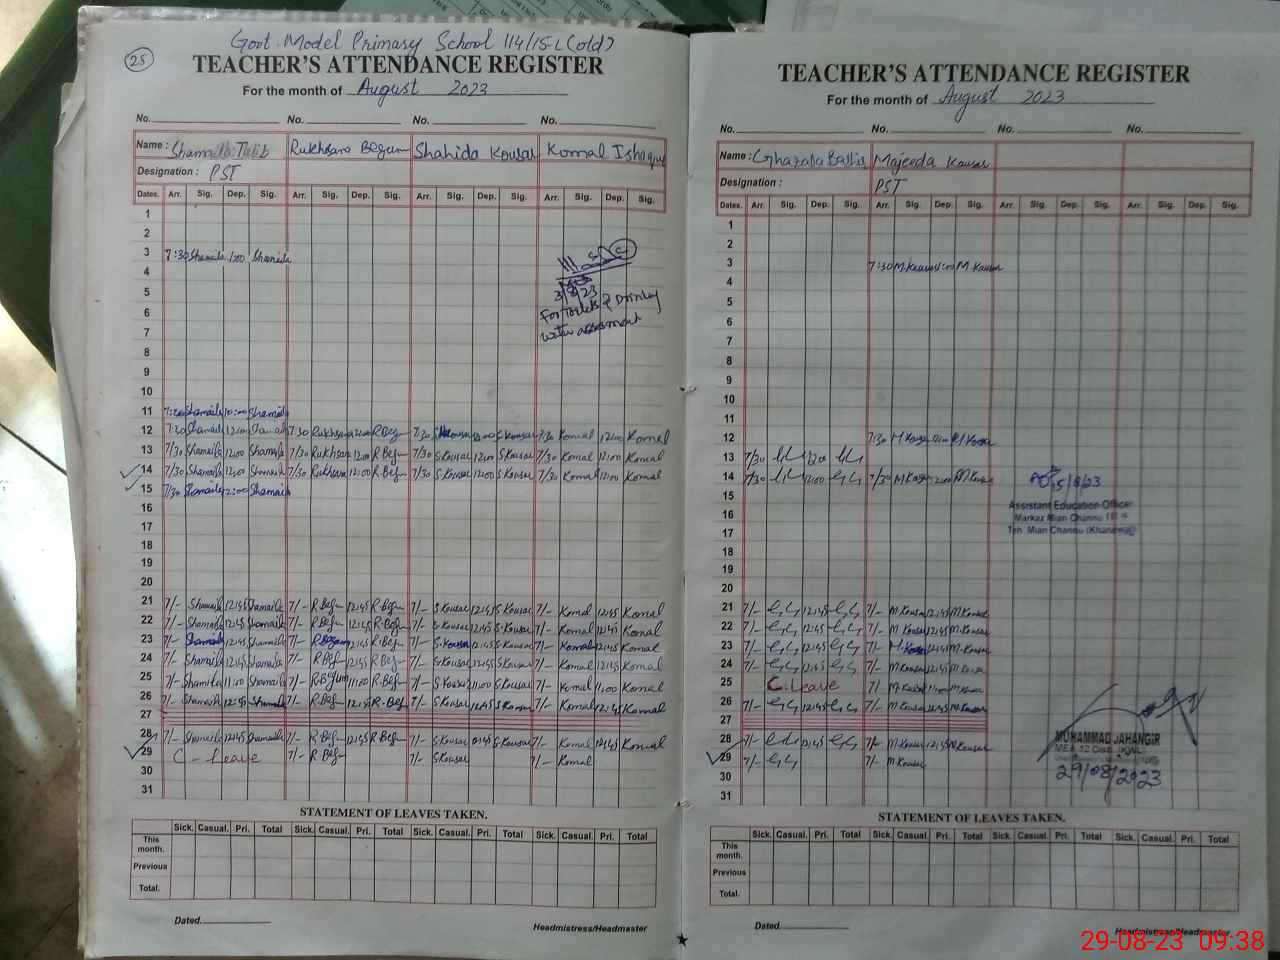 25
Govt. Model Primary School 114/15-L (old)
TEACHER'S ATTENDANCE REGISTER
For the month of August 2023
No. No. No. No.
Name : Shamaila Talib Rukhsana Begum Shahida Kousar Komal Ishaque
Designation : PST
Dates. Arr. Sig. Dep. Sig. Arr. Sig. Dep. Sig. Arr. Sig. Dep. Sig. Arr. Sig. Dep. Sig.
1
2
3 7:30 Shamaila 1:00 Shamaila
4
5
6
7
8
9
10
11 Shamaila Shamaila
12 7:30 Shamaila 12:00 Shamaila 7:30 Rukhsana 12:00 R.Beg 7:30 S Kousar 12:00 S Kousar 7:30 Komal 12:00 Komal
13 7/30 Shamaila 12:00 Shamaila 7/30 Rukhsana 12:00 R.Beg 7/30 S Kousar 12:00 S Kousar 7/30 Komal 12:00 Komal
14 7/30 Shamaila 12:00 Shamaila 7/30 Rukhsana 12:00 R.Beg 7/30 S Kousar 12:00 S Kousar 7/30 Komal 12:00 Komal
15 7/30 Shamaila 12:00 Shamaila
16
17
18
19
20
21 7/- Shamaila 12:45 Shamaila 7/- R.Beg 12:45 R.Beg 7/- S Kousar 12:45 S Kousar 7/- Komal 12:45 Komal
22 7/- Shamaila 12:45 Shamaila 7/- R.Beg 12:45 R.Beg 7/- S Kousar 12:45 S Kousar 7/- Komal 12:45 Komal
23 7/- Shamaila 12:45 Shamaila 7/- R Begum 12:45 R.Beg 7/- S Kousar 12:45 S Kousar 7/- Komal 12:45 Komal
24 7/- Shamaila 12:45 Shamaila 7/- R.Beg 12:45 R.Beg 7/- S Kousar 12:45 S Kousar 7/- Komal 12:45 Komal
25 7/- Shamaila 11:00 Shamaila 7/- R Begum 11:00 R.Beg 7/- S Kousar 11:00 S Kousar 7/- Komal 11:00 Komal
26 7/- Shamaila 12:45 Shamaila 7/- R.Beg 12:45 R.Beg 7/- S Kousar 12:45 S Kousar 7/- Komal 12:45 Komal
27
28 7/- Shamaila 12:45 Shamaila 7/- R.Beg 12:45 R.Beg 7/- S Kousar 12:45 S Kousar 7/- Komal 12:45 Komal
29 C - Leave 7/- R.Beg 7/- S Kousar 7/- Komal
30
31
3/8/23
For Toilets & Drinking
water assesment
STATEMENT OF LEAVES TAKEN.
Sick. Casual. Pri. Total Sick. Casual. Pri. Total Sick. Casual. Pri. Total Sick. Casual. Pri. Total
This month.
Previous
Total.
Dated.
Headmistress/Headmaster
TEACHER'S ATTENDANCE REGISTER
For the month of August 2023
No. No. No. No.
Name : Ghazala Bashir Majeeda Kausar
Designation : PST
Dates. Arr. Sig. Dep. Sig. Arr. Sig. Dep. Sig. Arr. Sig. Dep. Sig. Arr. Sig. Dep. Sig.
1
2
3 7:30 M.Kausar 1:00 M.Kausar
4
5
6
7
8
9
10
11
12 7:30 M Kausar 12:00 M Kausar
13 7/30 12:00
14 7/30 12:00 7/30 M Kausar 12:00 M Kausar
15
16
17
18
19
20
21 7/- 12:45 7/- M Kousar 12:45 M.Kousar
22 7/- 12:45 7/- M Kousar 12:45 M.Kousar
23 7/- 12:45 7/- M Kousar 12:45 M.Kousar
24 7/- 12:45 7/- M Kousar 12:45 M.Kousar
25 C. Leave 7/ M Kousar 11:00 M Kousar
26 7/- 12:45 7/- M Kousar 12:45 M.Kousar
27
28 7/- 12:45 7/- M Kousar 12:45 M Kousar
29 7/- 7/- M Kousar
30
31
15/8/23
Assistant Education Officer
Markaz Mian Channu
Teh. Mian Channu (Khanewal)
MUHAMMAD JAHANGIR
29/08/2023
STATEMENT OF LEAVES TAKEN.
Sick. Casual. Pri. Total Sick. Casual. Pri. Total Sick. Casual. Pri. Total Sick. Casual. Pri. Total
This month.
Previous
Total.
Dated.
Headmistress/Headmaster
29-08-23 09:38